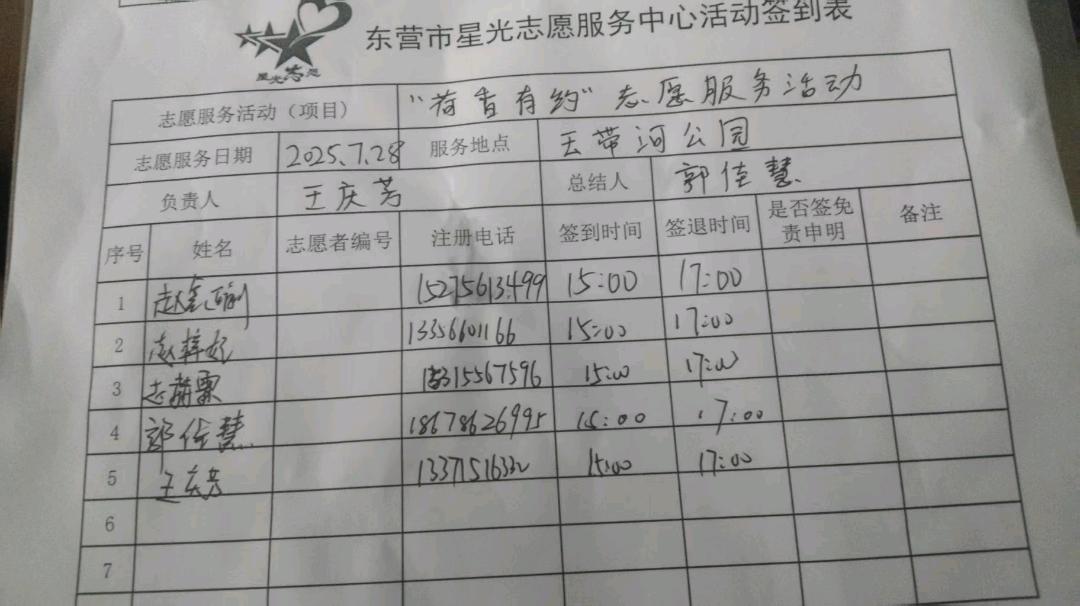 星光志愿
东营市星光志愿服务中心活动签到表
志愿服务活动（项目） “荷香有约”志愿服务活动
志愿服务日期 2025.7.28 服务地点 玉带河公园
负责人 王庆芳 总结人 郭佳慧
序号 姓名 志愿者编号 注册电话 签到时间 签退时间 是否签免责申明 备注
1 15275613499 15:00 17:00
2 赵梓妤 13356601166 15:00 17:00
3 15315567596 15:00 17:00
4 郭佳慧 18678626995 15:00 17:00
5 王庆芳 13371516332 15:00 17:00
6
7